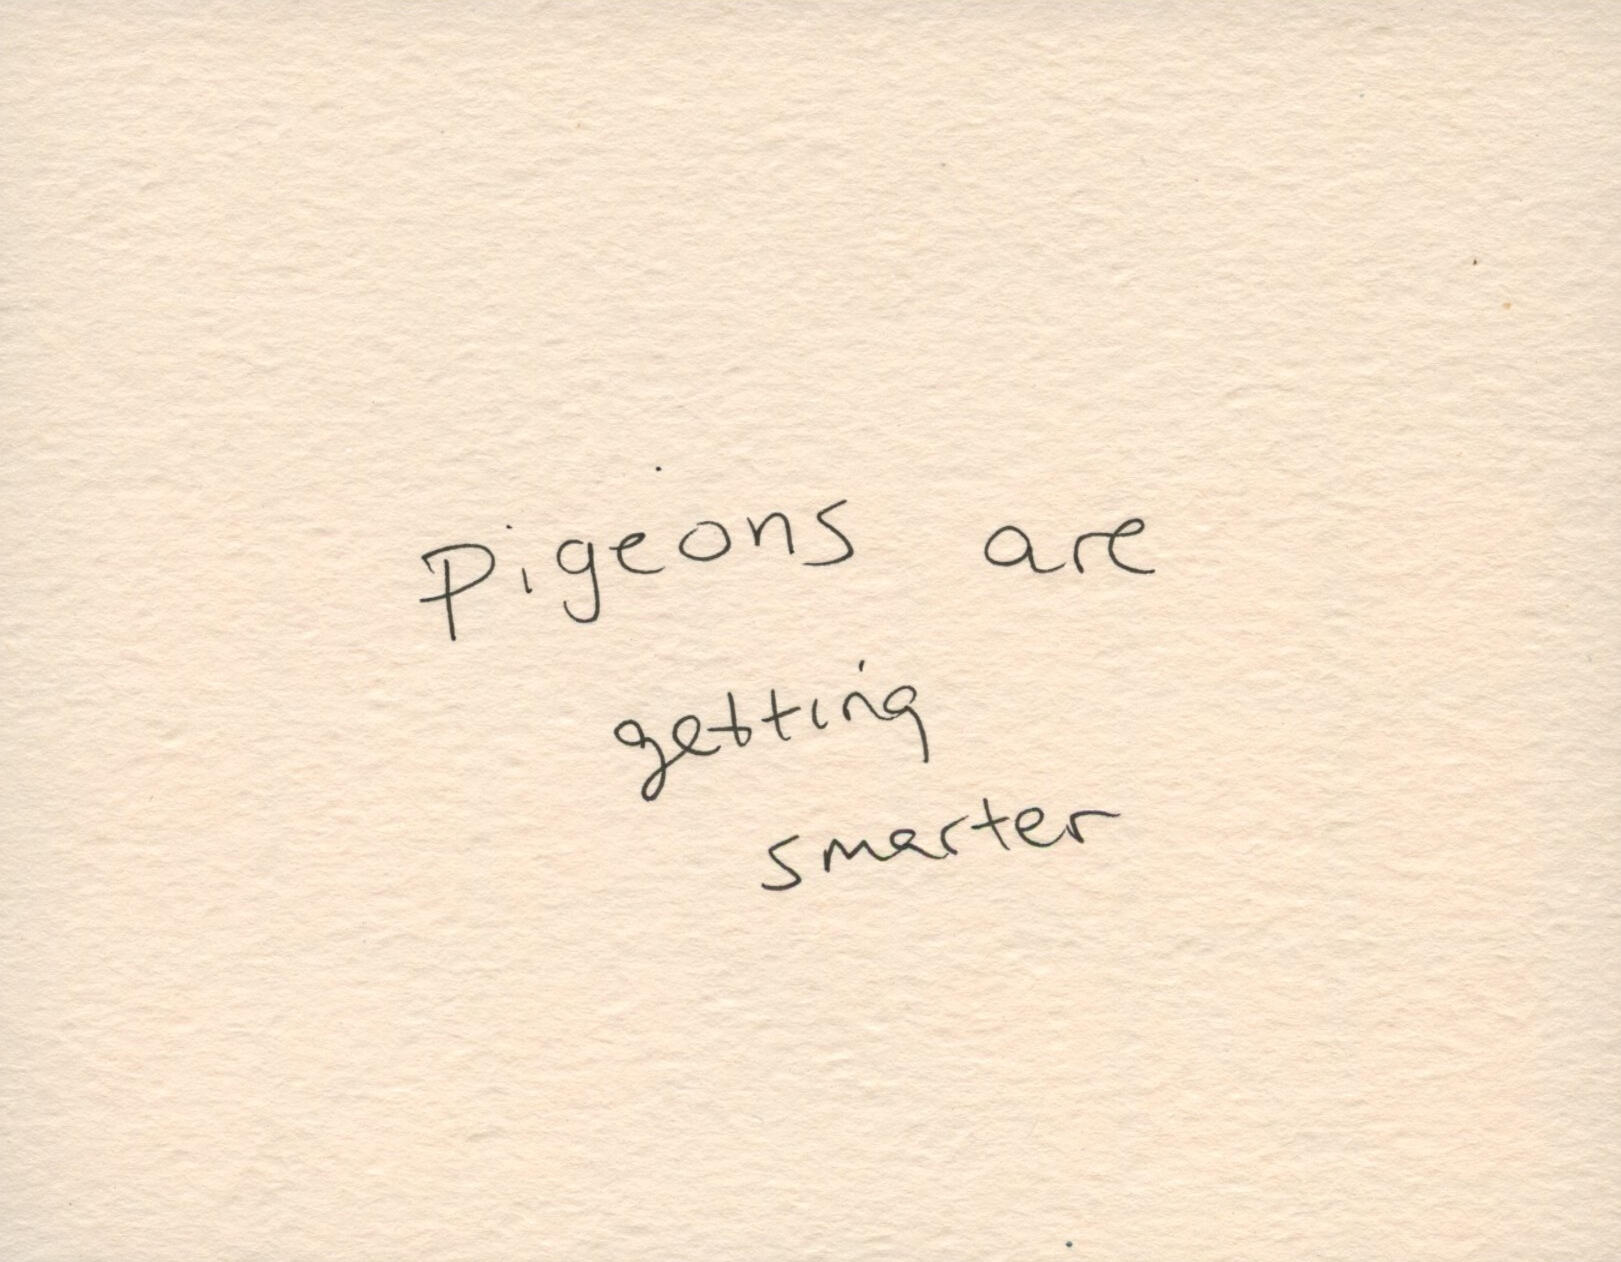 Pigeons are
getting
smarter